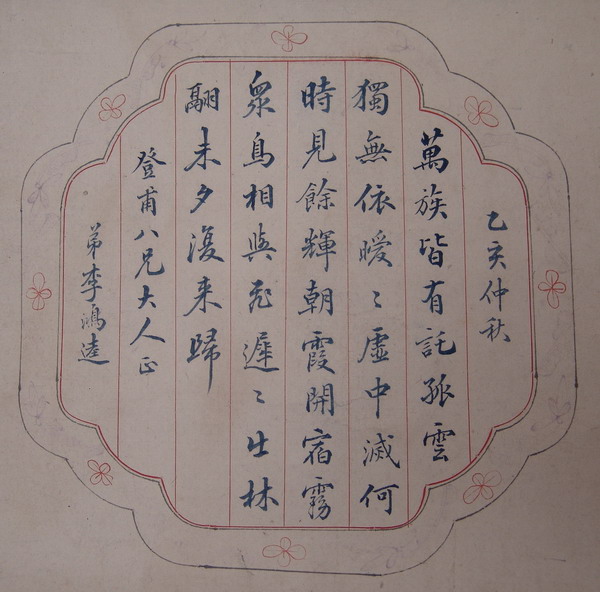 乙亥仲秋
萬族皆有託孤雲
獨無依曖〻虛中滅何
時見餘輝朝霞開宿霧
衆鳥相與飛遲〻出林
翮未夕復来歸
登甫八兄大人正
弟李鴻逵